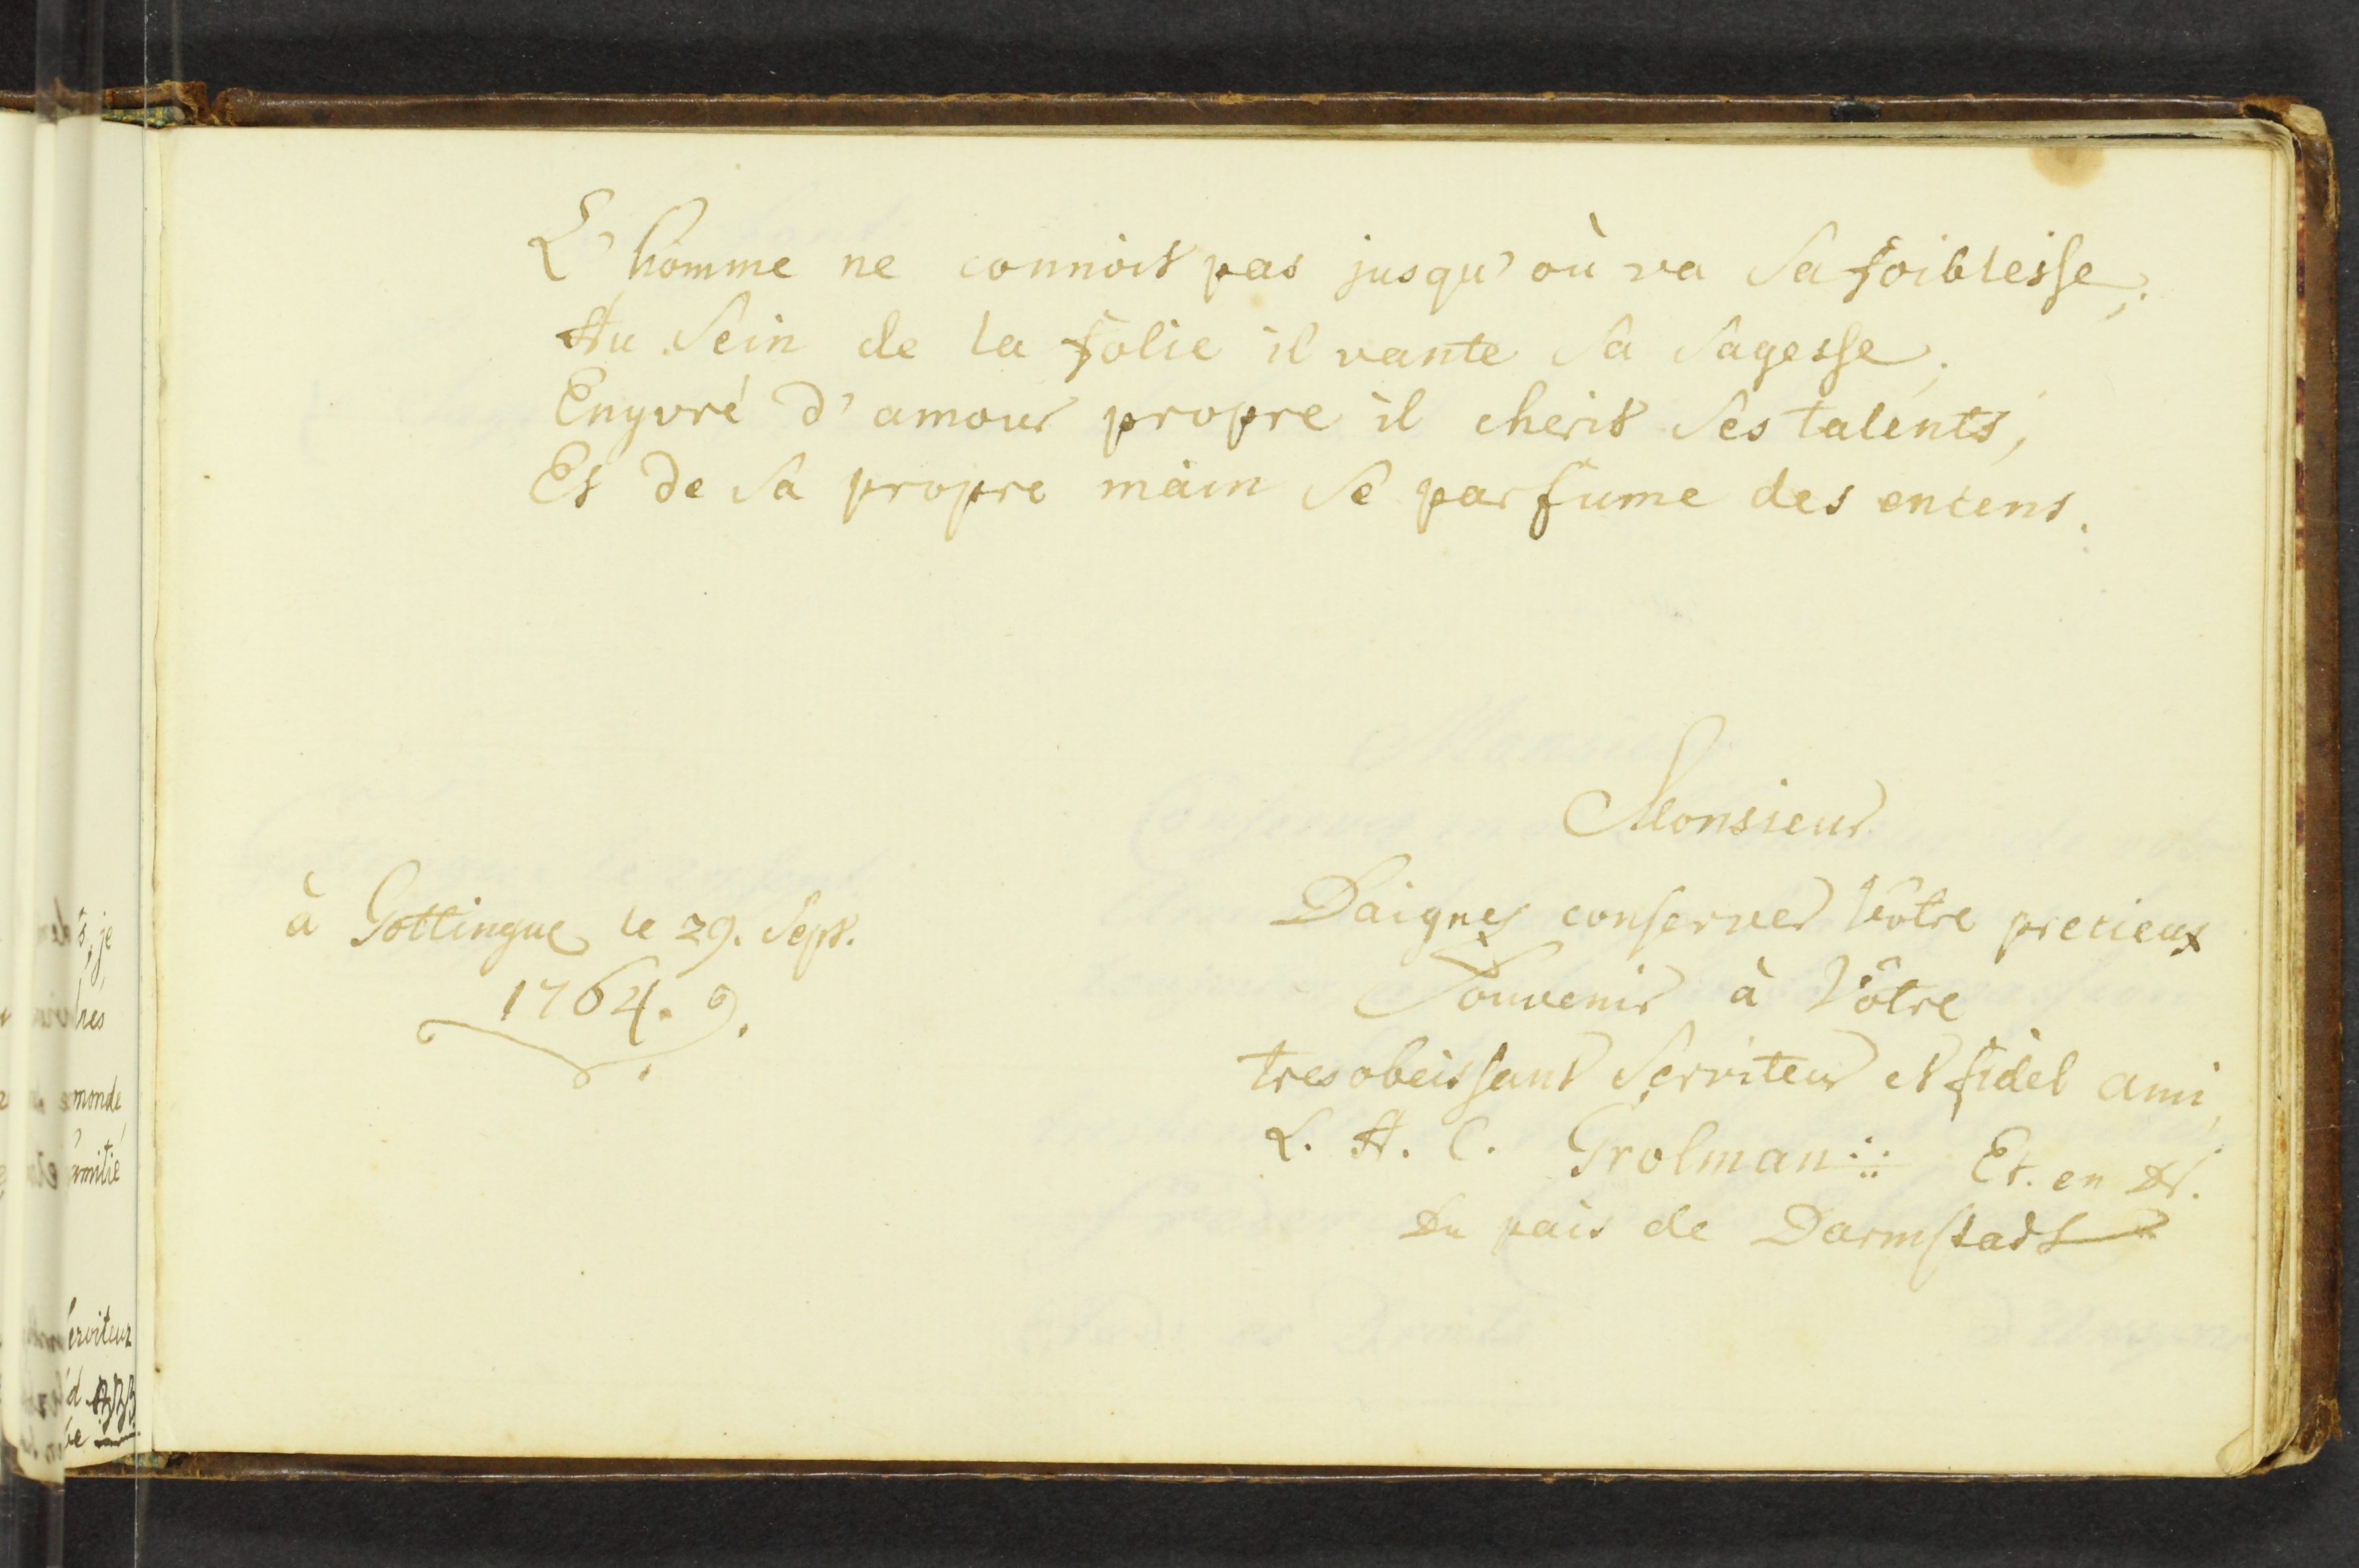 L'homme ne connoit pas jusqu'où va sa foiblesse,
Au sein de la folie il vante sa sagesse,
Enyvré d'amour propre il cherit ses talents,
Et de sa propre main se parfume des encens.
Monsieur
Daignez conserver Vôtre precieux
Souvenir à Vôtre
tres obeissant Serviteur et fidel ami,
L. A. C. Grolman Et. en Dr.
Du païs de Darmstadt
à Gottingue le 29. Sept.
1764.
monde
amitié
serviteur